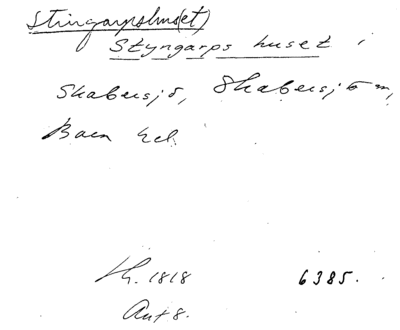 Stingarpshus(et)
Styngarps huset i
Skabersjö, Skabersjö sn,
Bara hd.
Lh. 1818
6385.
Ant 8.